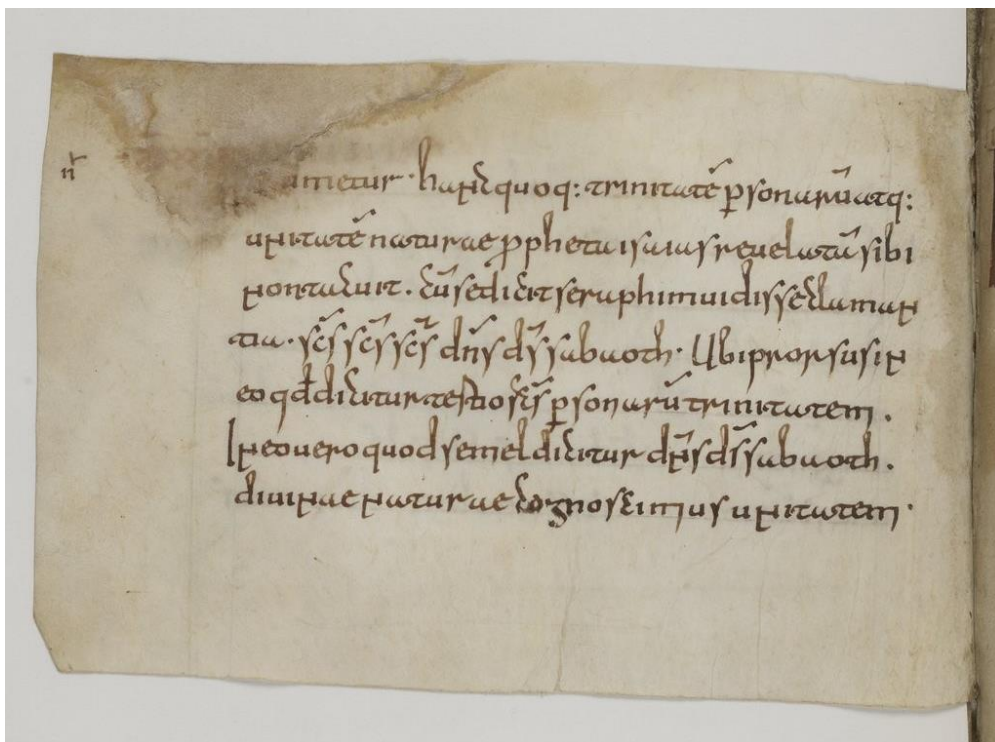 metur · hancquoq: trinitatē p̱sonarūatq:
unitatē naturae ꝓpheta isaias reuelatā sibi
nontacuit . cū se dicit seraphim uidisse claman
tia · sc̄s sc̄s sc̄s dn̄s ds̄ sabaoth · Ubi prorsus in
eo qđ dicitur tertio sc̄s p̱sonarū trinitatem .
In eo uero quod semel dicitur dn̄s ds̄ sabaoth .
diuinae naturae cognoscimus unitatem ·